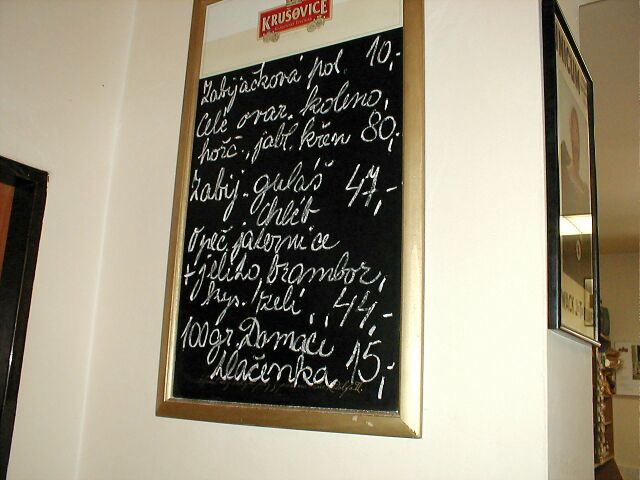 KRUŠOVICE
Zabijačková pol. 10,-
Celé ovar. koleno,
hořč., jabl. křen 80,-
Zabij. guláš 47,-
chléb
Opeč jaternice
+ jelito, brambor,
kys. zelí.. 44,-
100gr. Domácí
tlačenka 15,-